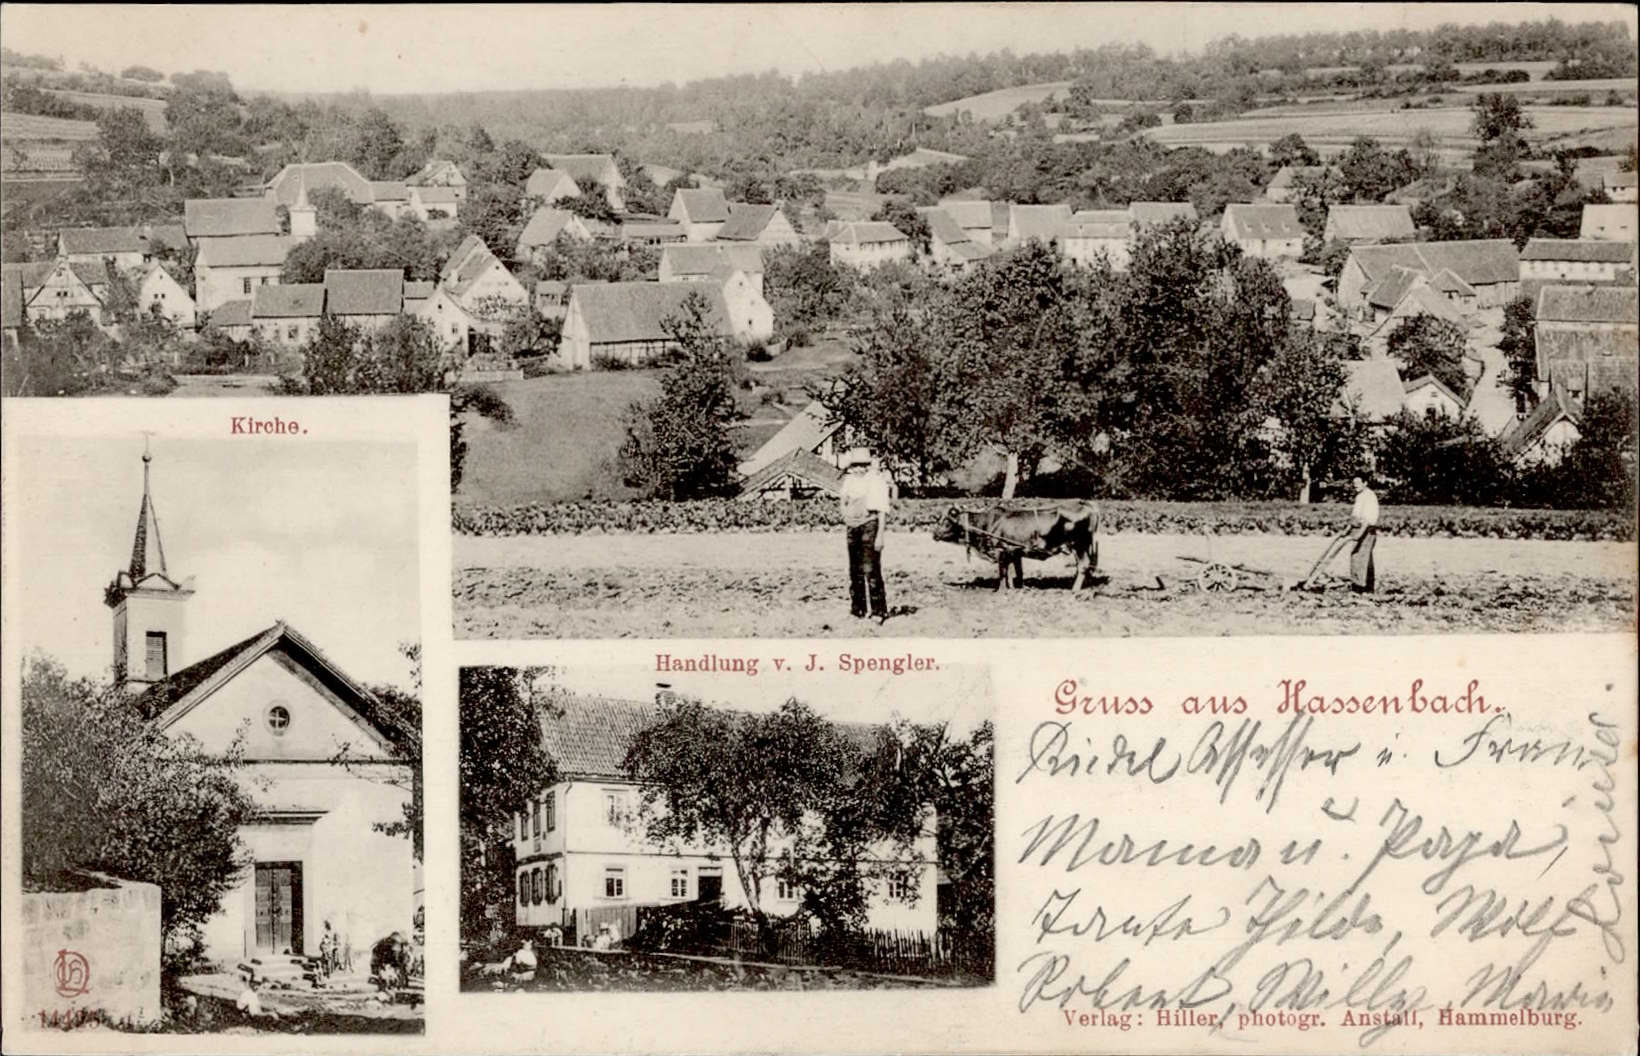 Kirche.
Handlung v. J. Spengler.
Gruss aus Hassenbach.
Riedel Assessor u. Frau,
Mama u. Papa,
Tante Thilde, Wolf
Robert, Willy, Marie
Verlag: Hiller, photogr. Anstalt, Hammelburg.